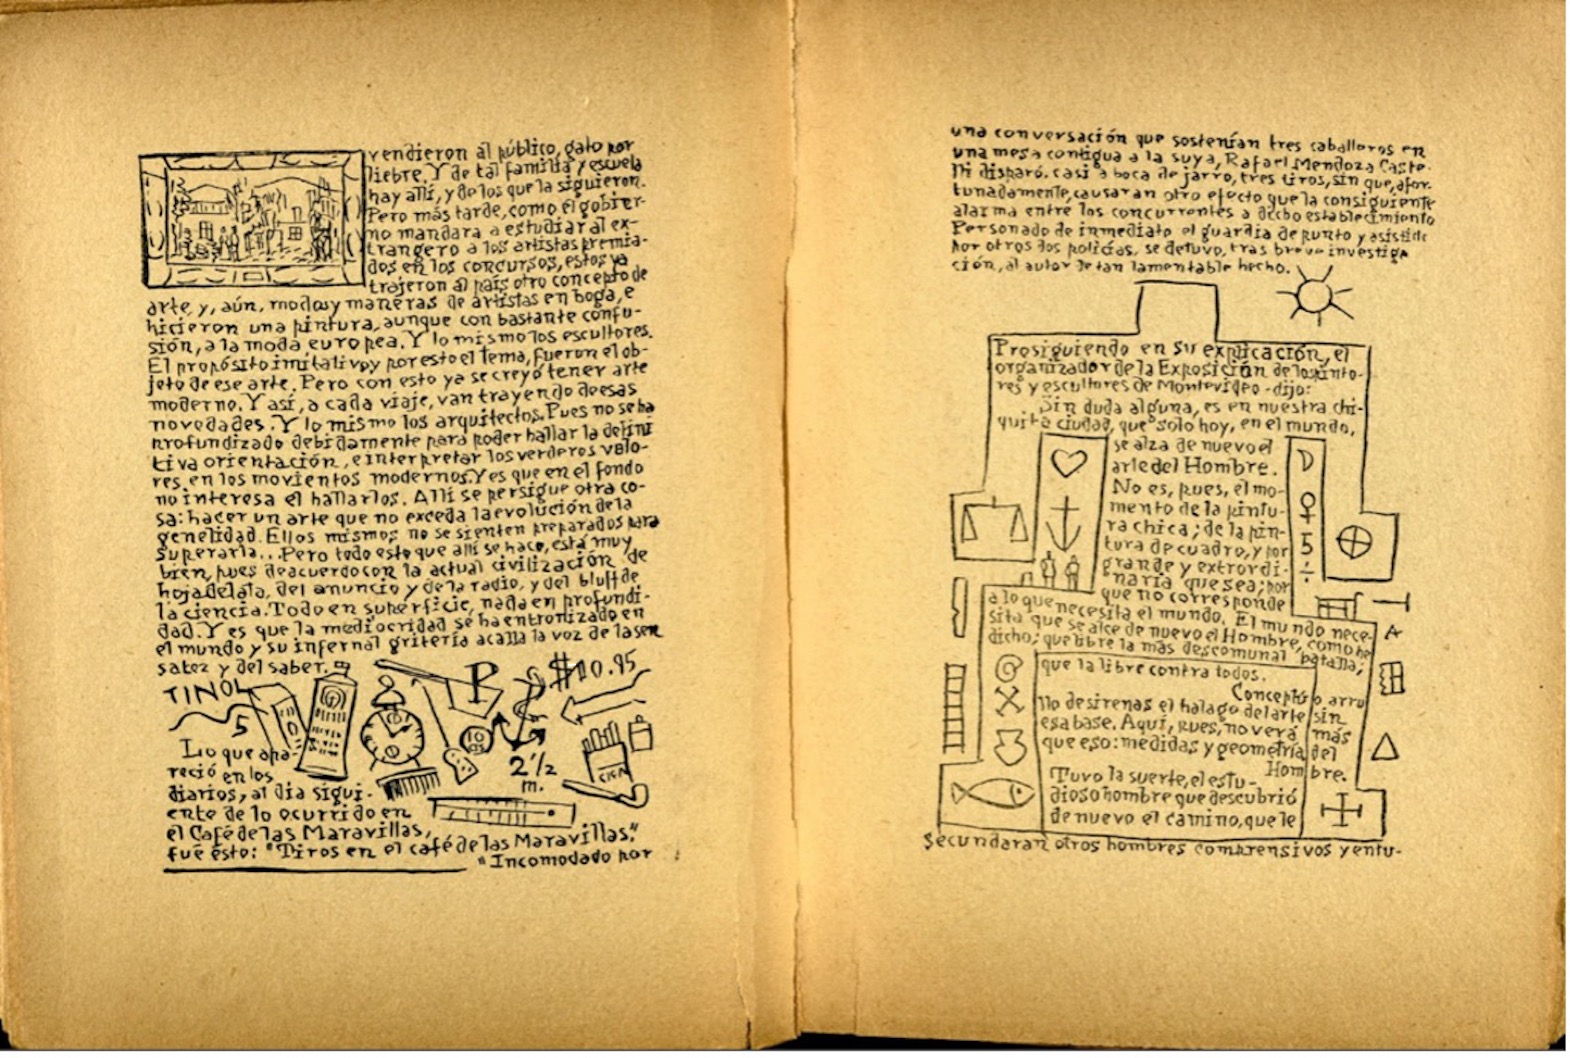 vendieron al público, gato por
liebre. Y de tal familia y escuela
hay allí, y de los que la siguieron.
Pero más tarde, como el gobier-
no mandara a estudiar al ex-
trangero a los artistas premia-
dos en los concursos, estos ya
trajeron al país otro concepto de
arte, y, aún, modas y maneras de artistas en boga, e
hicieron una pintura, aunque con bastante confu-
sión, a la moda europea. Y lo mismo los escultores.
El propósito imitativo y por esto el tema, fueron el ob-
jeto de ese arte. Pero con esto ya se creyó tener arte
moderno. Y así, a cada viaje, van trayendo de esas
novedades. Y lo mismo los arquitectos. Pues no se ha
profundizado debidamente para poder hallar la defini
tiva orientación, e interpretar los verderos valo-
res, en los movientos modernos. Y es que en el fondo
no interesa el hallarlos. Allí se persigue otra co-
sa: hacer un arte que no exceda la evolución de la
genelidad. Ellos mismos no se sienten preparados para
superarla... Pero todo esto que allí se hace, está muy
bien, pues de acuerdo con la actual civilización de
hojadelata, del anuncio y de la radio, y del bluff de
la ciencia. Todo en superficie, nada en profundi-
dad. Y es que la mediocridad se ha entronizado en
el mundo y su infernal gritería acalla la voz de la sen
satez y del saber.
TINOL
P
$10.95
5
2 1/2
m.
Lo que apa-
reció en los
diarios, al día sigui-
ente de lo ocurrido en
el Café de las Maravillas,
fue esto: "Tiros en el café de las Maravillas."
"Incomodado por
una conversación que sostenían tres caballeros en
una mesa contigua a la suya, Rafael Mendoza Caste-
lli disparó, casi a boca de jarro, tres tiros, sin que, afor-
tunadamente, causaran otro efecto que la consiguiente
alarma entre los concurrentes a dicho establecimiento
Personado de inmediato el guardia de punto y asistido
por otros dos policías, se detuvo, tras breve investiga
ción, al autor de tan lamentable hecho.
Prosiguiendo en su explicación, el
organizador de la Exposición de los pinto-
res y escultores de Montevideo - dijo:
Sin duda alguna, es en nuestra chi-
quita ciudad, que solo hoy, en el mundo,
se alza de nuevo el
arte del Hombre.
No es, pues, el mo-
mento de la pintu-
ra chica; de la pin-
tura de cuadro, y por
grande y extrordi-
naria que sea; por
que no corresponde
a lo que necesita el mundo. El mundo nece-
sita que se alce de nuevo el Hombre, como he
dicho; que libre la más descomunal batalla;
que la libre contra todos.
5
A
Concepto o arru
llo de sirenas el halago del arte sin
esa base. Aquí, pues, no verá más
que eso: medidas y geometría del
Hombre.
Tuvo la suerte, el estu-
dioso hombre que descubrió
de nuevo el camino, que le
secundaran otros hombres comprensivos y entu-